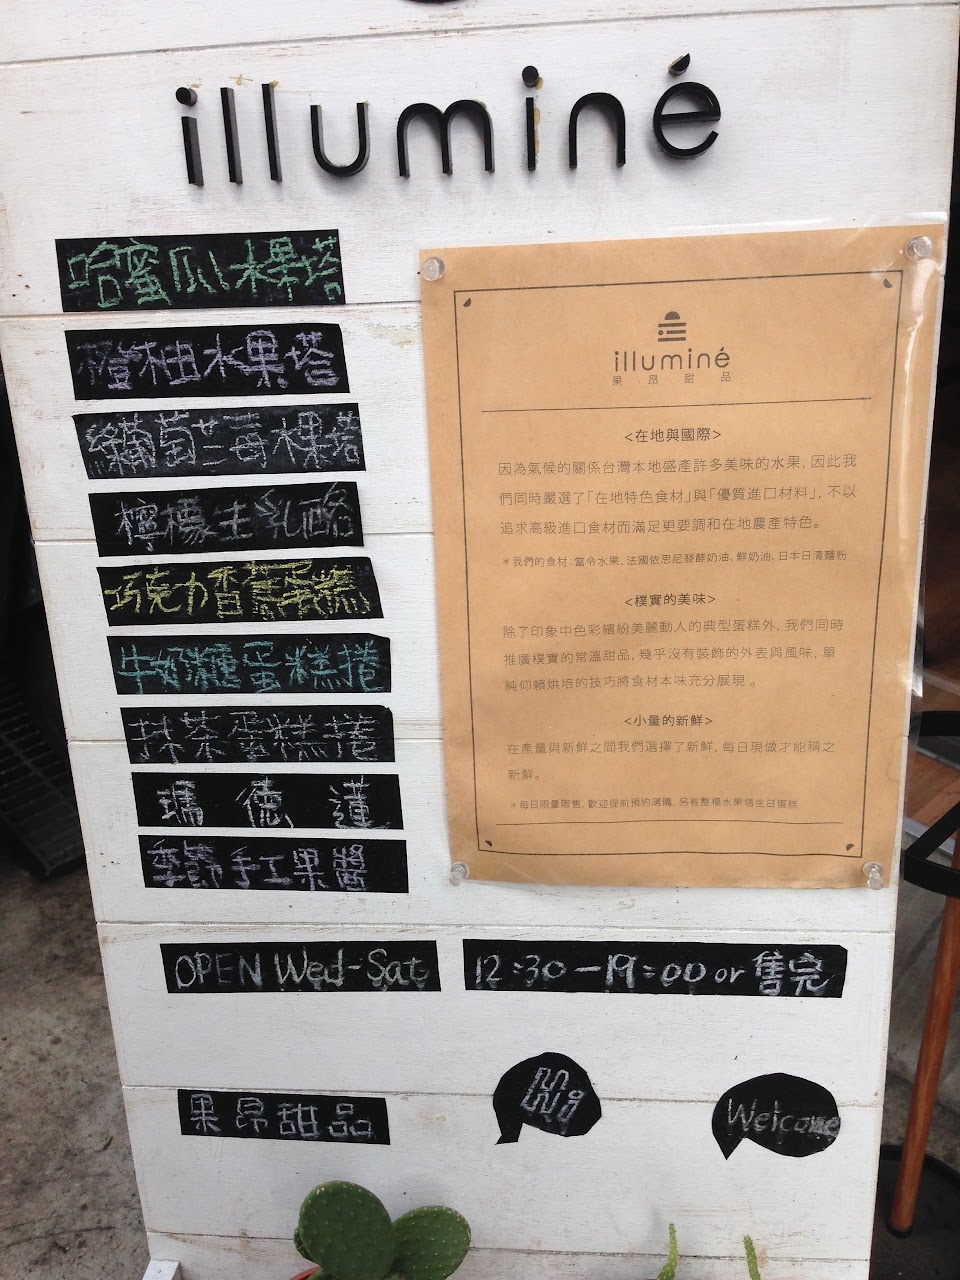 illuminé
哈蜜瓜水果塔
橙柚水果塔
葡萄芒莓水果塔
檸檬生乳酪
巧克力香蕉蛋糕
牛奶糖蛋糕捲
抹茶蛋糕捲
瑪德蓮
季節手工果醬
illuminé
果昂甜品
<在地與國際>
因為氣候的關係台灣本地盛產許多美味的水果, 因此我
們同時嚴選了「在地特色食材」與「優質進口材料」, 不以
追求高級進口食材而滿足更要調和在地農產特色。
＊我們的食材: 當令水果、法國依思尼發酵奶油、鮮奶油、日本日清麵粉
<樸實的美味>
除了印象中色彩繽紛美麗動人的典型蛋糕外, 我們同時
推廣樸實的常溫甜品, 幾乎沒有裝飾的外表與風味, 單
純仰賴烘培的技巧將食材本味充分展現 。
<小量的新鮮>
在產量與新鮮之間我們選擇了新鮮, 每日現做才能稱之
新鮮。
＊每日限量販售, 歡迎提前預約選購, 另有整模水果塔生日蛋糕
OPEN Wed-Sat 12:30-19:00 or 售完
果昂甜品
Hi
Welcome